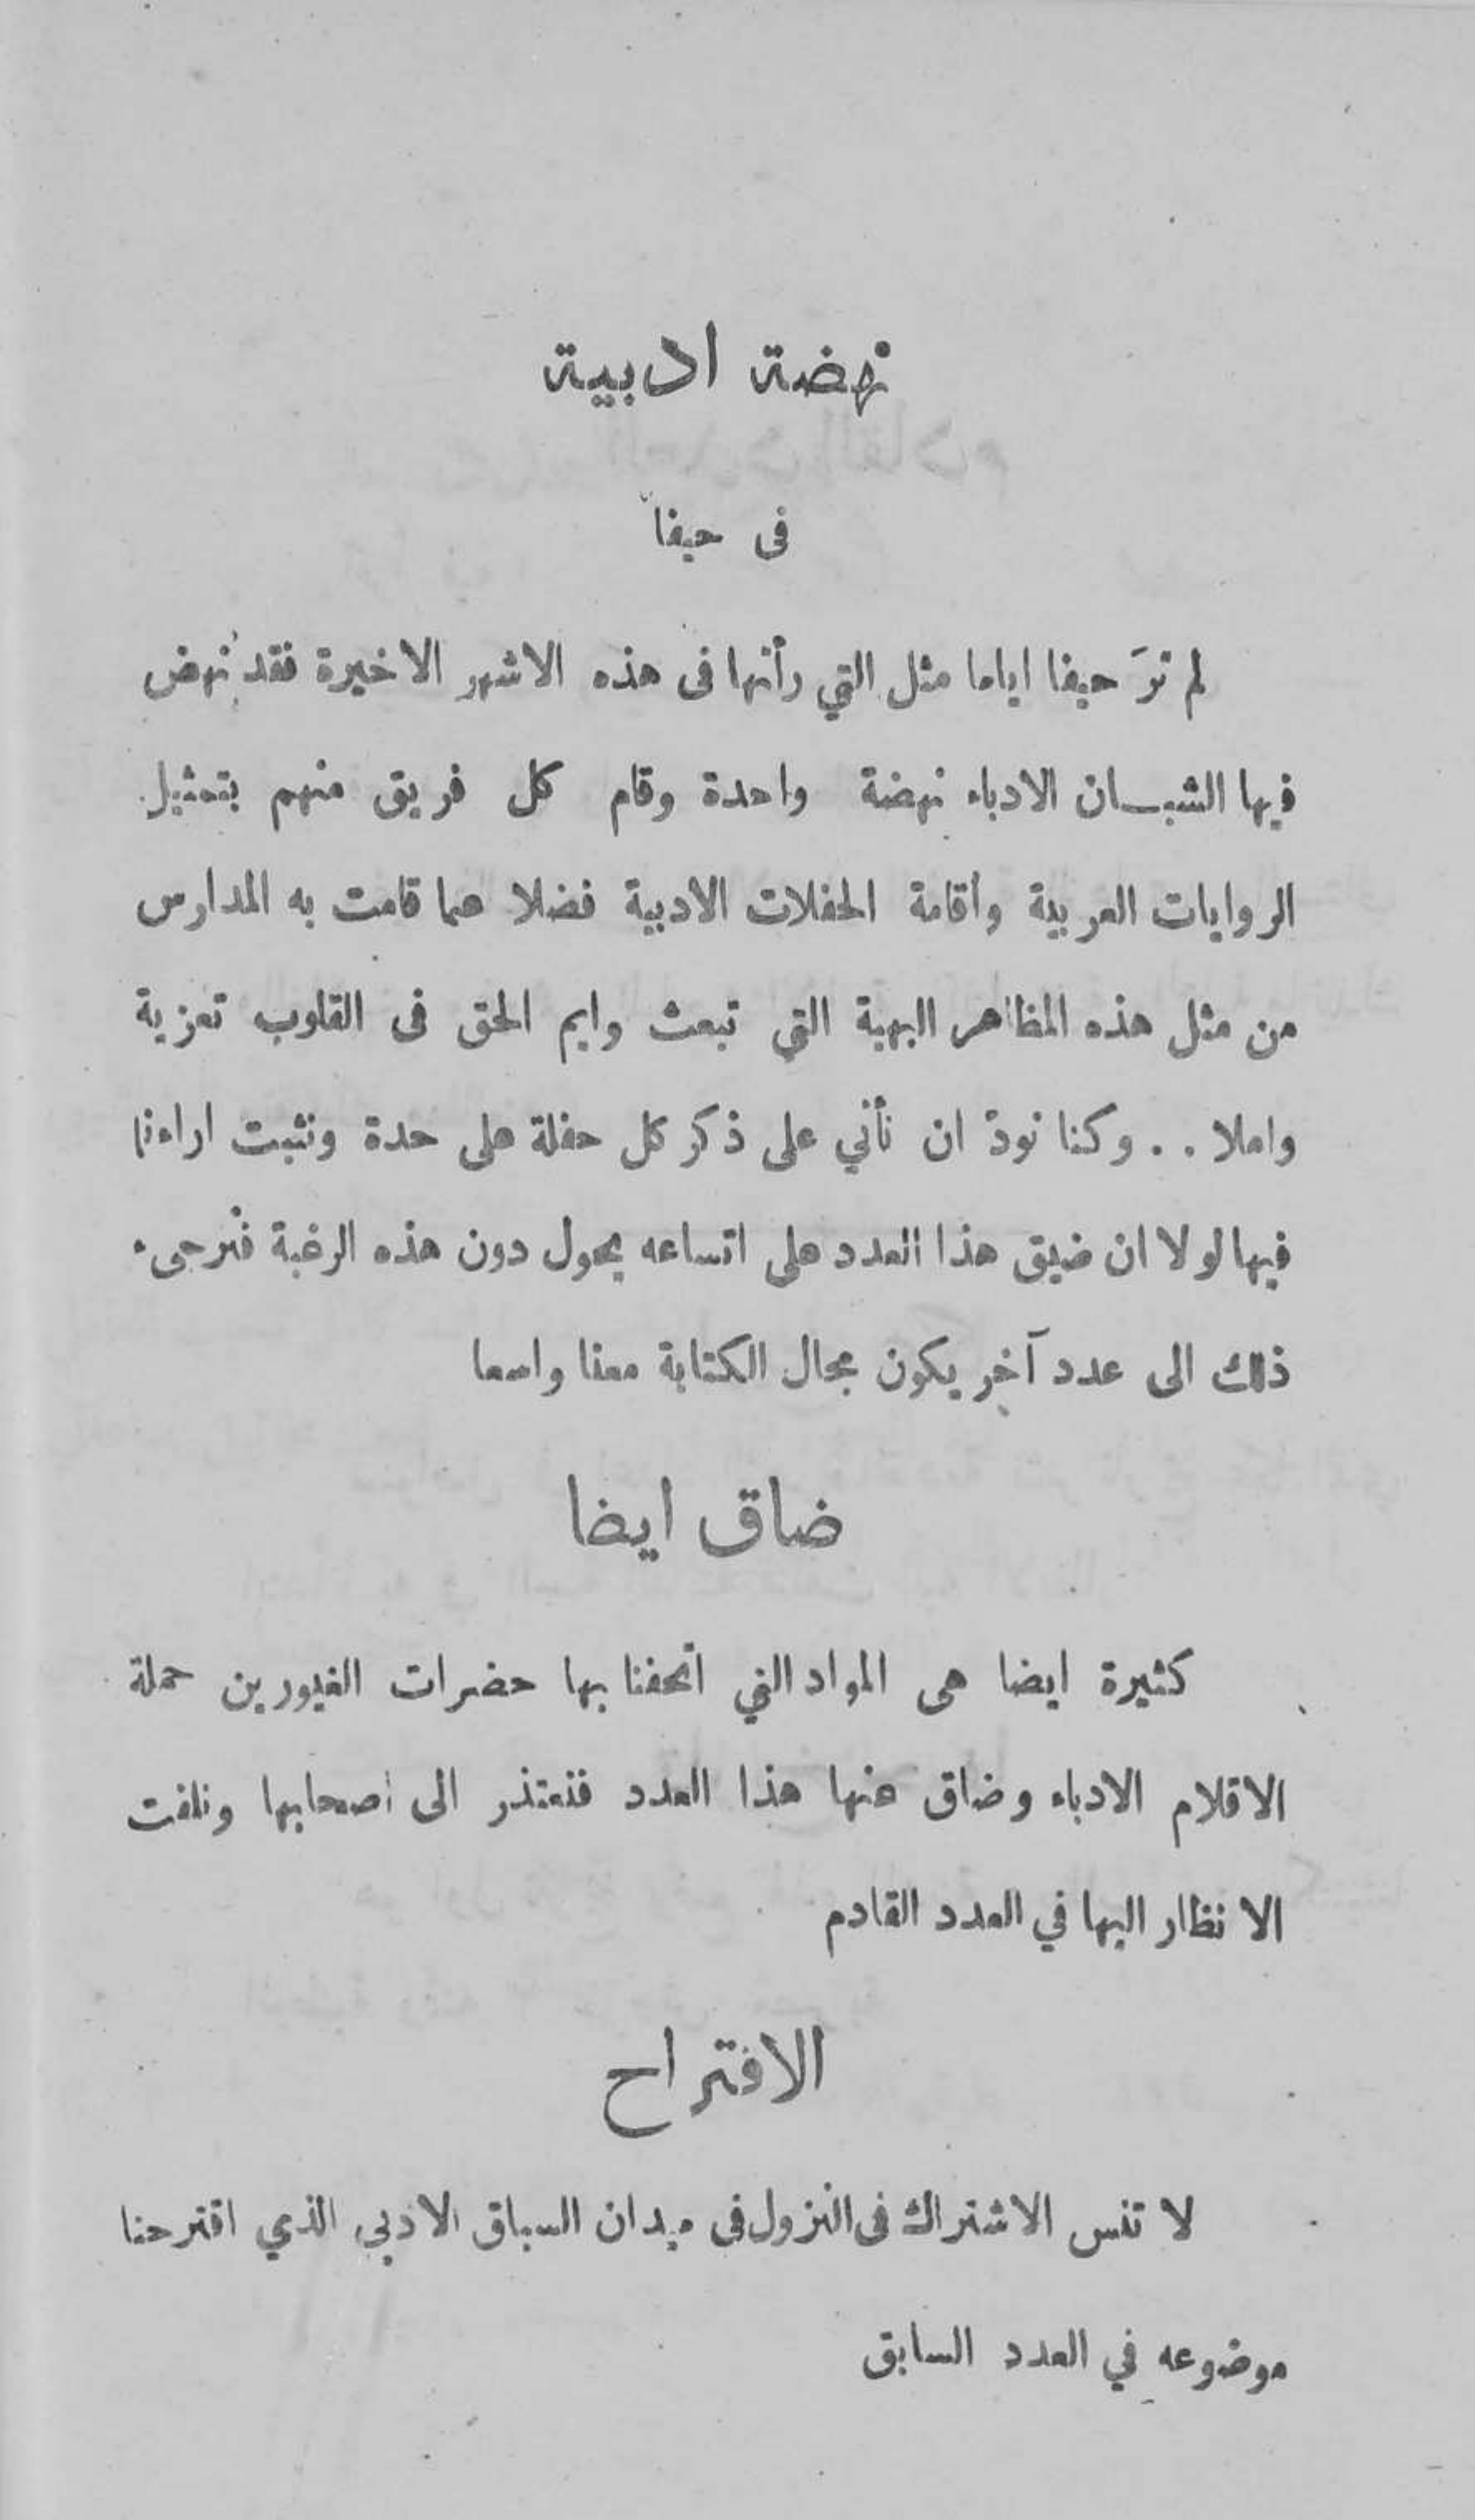 نهضة ادبية
فى حيفا
لم ترَ حيفا اياما مثل التي رأتها فى هذه الاشهر الاخيرة فقد نهض
فيها الشبان الادباء نهضة واحدة وقام كل فريق منهم بتمثيل
الروايات العربية وأقامة الحفلات الادبية فضلا عما قامت به المدارس
من مثل هذه المظاهر البهية التي تبعث وايم الحق فى القلوب تعزية
واملا . . وكنا نودّ ان نأتي على ذكر كل حفلة على حدة ونثبت اراءنا
فيها لولا ان ضيق هذا العدد على اتساعه يحول دون هذه الرغبة فنرجىء
ذلك الى عدد آخر يكون مجال الكتابة معنا واسعا
ضاق ايضا
كثيرة ايضا هى المواد التي اتحفنا بها حضرات الغيورين حملة
الاقلام الادباء وضاق عنها هذا العدد فنعتذر الى اصحابها ونلفت
الانظار اليها في العدد القادم
الاقتراح
لا تنس الاشتراك فى النزول فى ميدان السباق الادبي الذي اقترحنا
موضوعه في العدد السابق